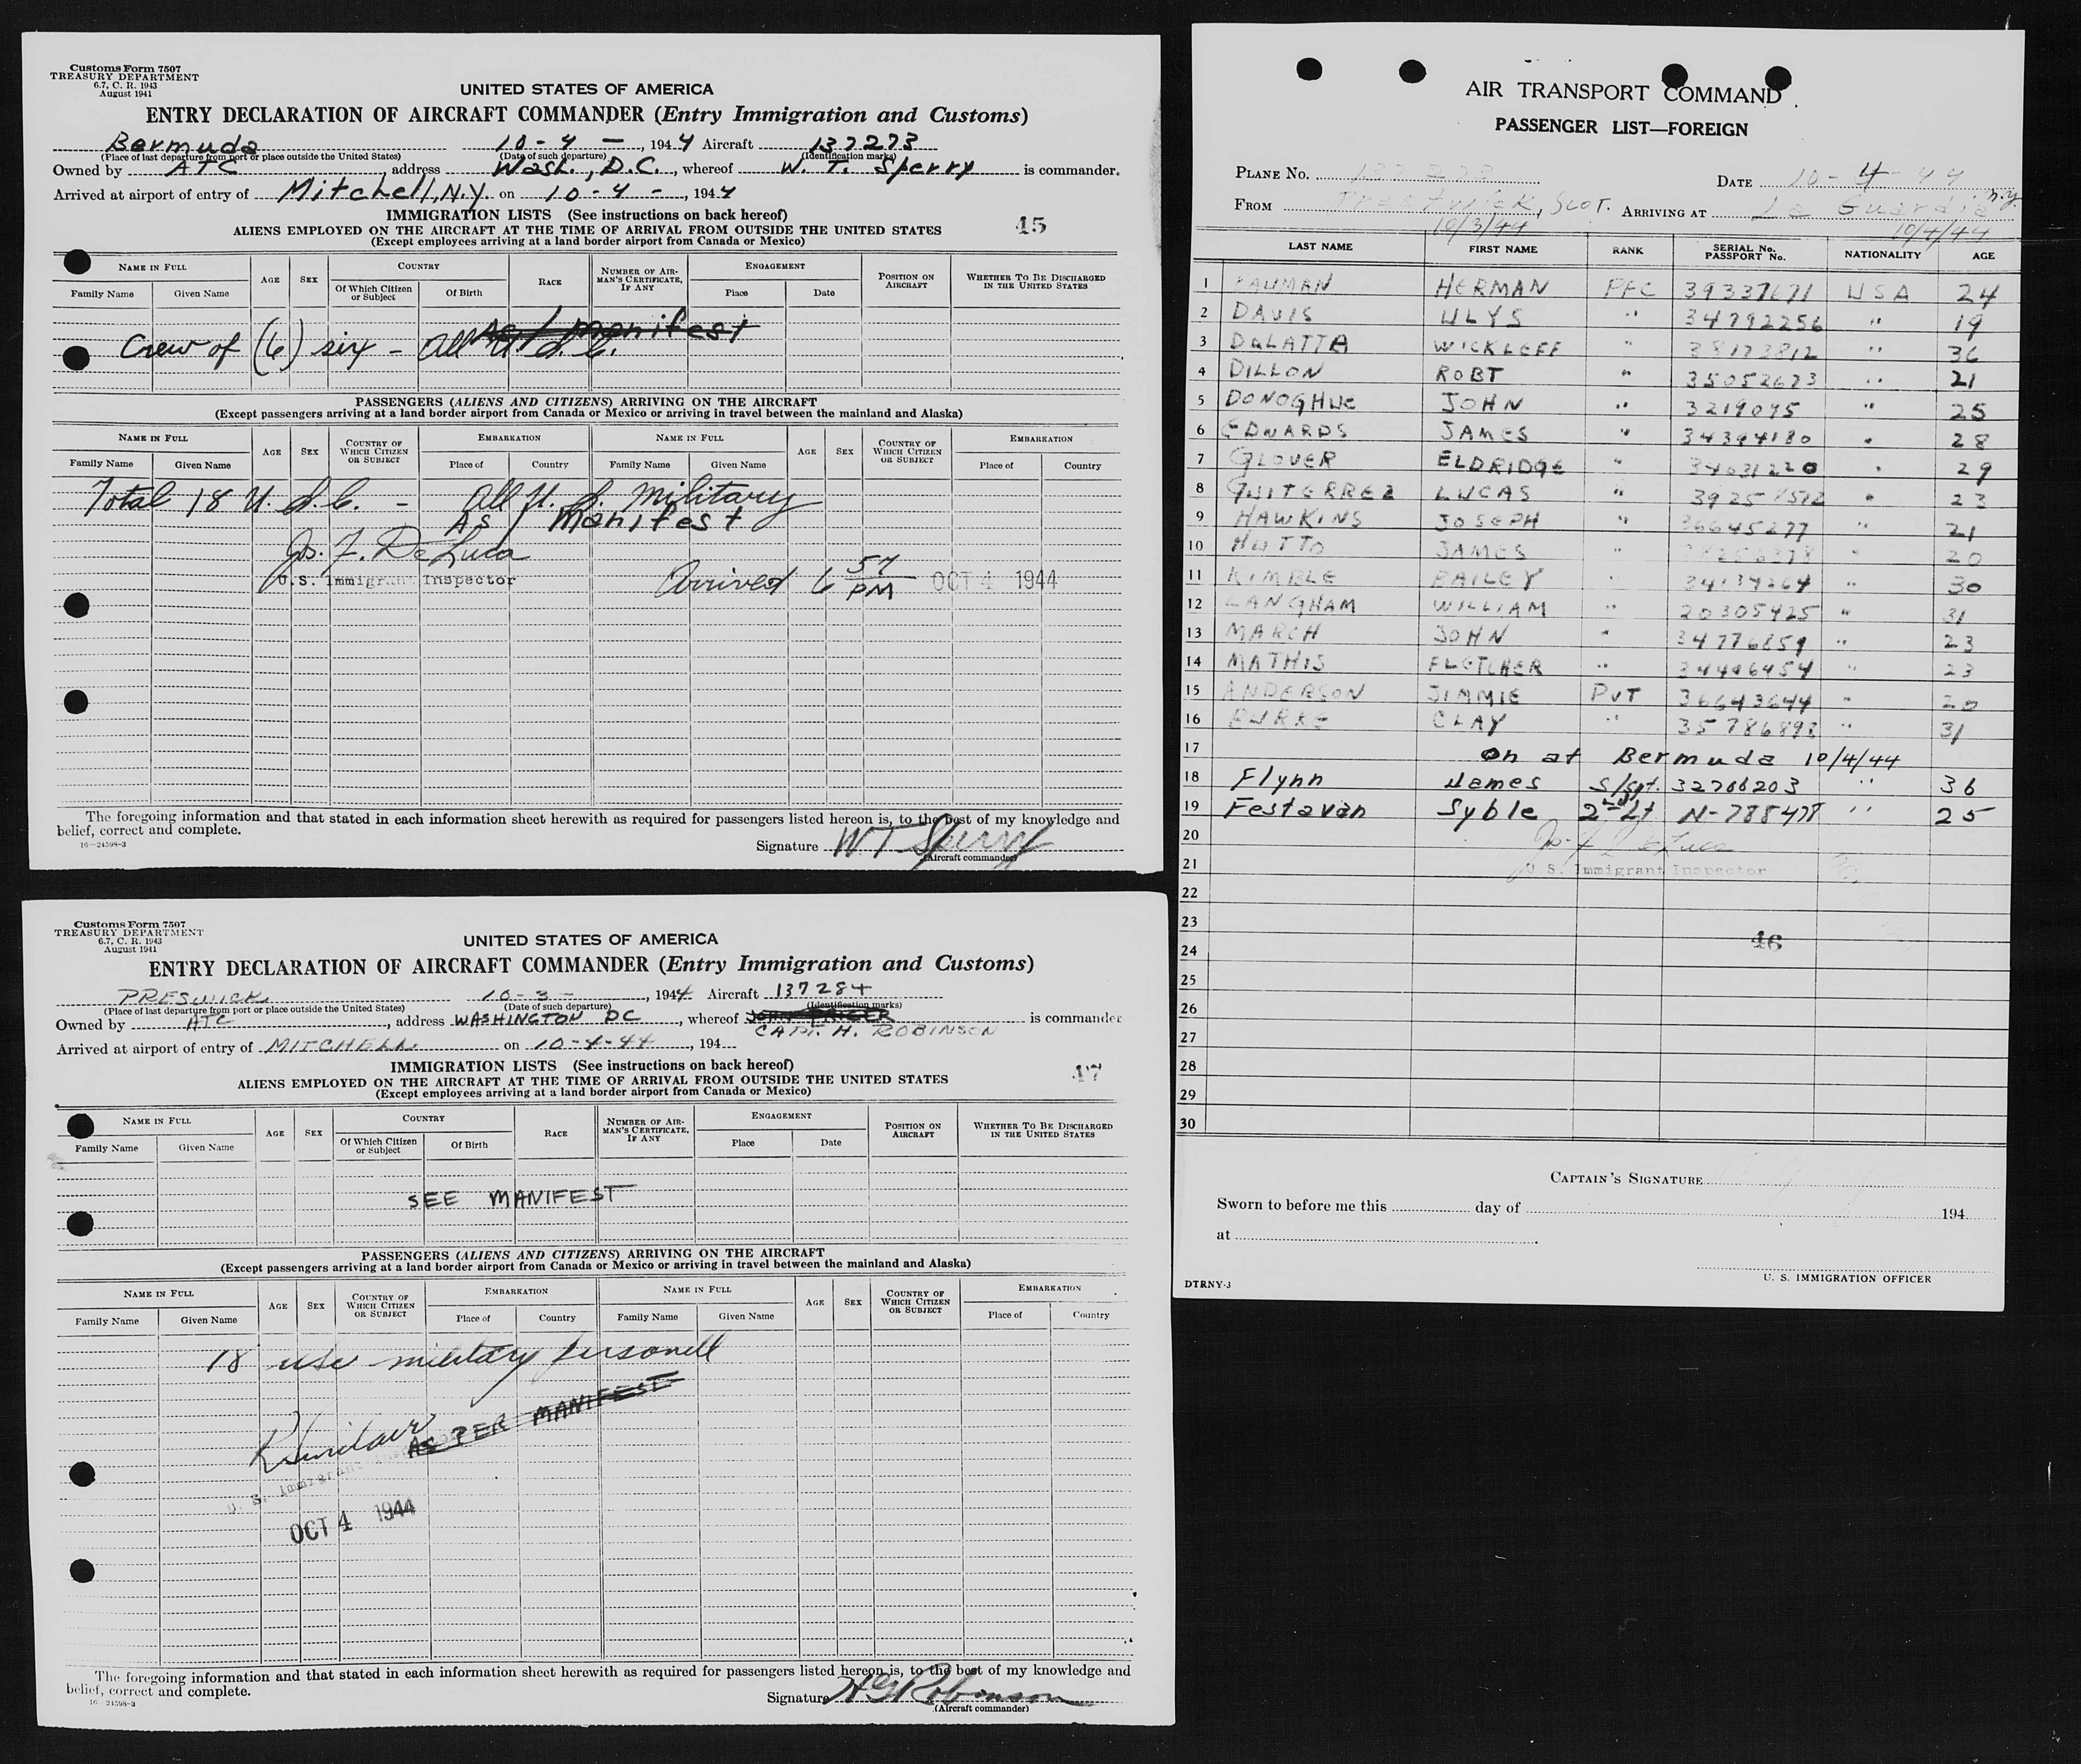 Customs Form 7507
TREASURY DEPARTMENT
6.7, C. R. 1943
August 1941
UNITED STATES OF AMERICA
ENTRY DECLARATION OF AIRCRAFT COMMANDER (Entry Immigration and Customs)
Bermuda 10-4-, 1944 Aircraft 137273
(Place of last departure from port or place outside the United States) (Date of such departure) (Identification marks)
Owned by ATC, address Wash., D.C., whereof W. T. Sperry is commander.
Arrived at airport of entry of Mitchell, N.Y. on 10-4-, 1944
IMMIGRATION LISTS (See instructions on back hereof)
45
ALIENS EMPLOYED ON THE AIRCRAFT AT THE TIME OF ARRIVAL FROM OUTSIDE THE UNITED STATES
(Except employees arriving at a land border airport from Canada or Mexico)
NAME IN FULL AGE SEX COUNTRY RACE NUMBER OF AIRMAN'S CERTIFICATE, IF ANY ENGAGEMENT POSITION ON AIRCRAFT WHETHER TO BE DISCHARGED IN THE UNITED STATES
Family Name Given Name Of Which Citizen or Subject Of Birth Place Date
As / Manifest
Crew of (6) six - All U. S. C.
PASSENGERS (ALIENS AND CITIZENS) ARRIVING ON THE AIRCRAFT
(Except passengers arriving at a land border airport from Canada or Mexico or arriving in travel between the mainland and Alaska)
NAME IN FULL AGE SEX COUNTRY OF WHICH CITIZEN OR SUBJECT EMBARKATION NAME IN FULL AGE SEX COUNTRY OF WHICH CITIZEN OR SUBJECT EMBARKATION
Family Name Given Name Place of Country Family Name Given Name Place of Country
Total 18 U. S. C. - All U. S. Military
As / Manifest
Jos. F. DeLuca
U.S. Immigrant Inspector
Arrived 6 57 PM OCT 4 1944
The foregoing information and that stated in each information sheet herewith as required for passengers listed hereon is, to the best of my knowledge and
belief, correct and complete.
16—24598-3
Signature WT Sperry
(Aircraft commander)
Customs Form 7507
TREASURY DEPARTMENT
6.7, C. R. 1943
August 1941
UNITED STATES OF AMERICA
ENTRY DECLARATION OF AIRCRAFT COMMANDER (Entry Immigration and Customs)
PRESWICK 10-3-, 1944 Aircraft 137284
(Place of last departure from port or place outside the United States) (Date of such departure) (Identification marks)
Owned by ATC, address WASHINGTON DC, whereof is commander
CAPT. H. ROBINSON
Arrived at airport of entry of MITCHELL on 10-4-44, 194
IMMIGRATION LISTS (See instructions on back hereof)
47
ALIENS EMPLOYED ON THE AIRCRAFT AT THE TIME OF ARRIVAL FROM OUTSIDE THE UNITED STATES
(Except employees arriving at a land border airport from Canada or Mexico)
NAME IN FULL AGE SEX COUNTRY RACE NUMBER OF AIRMAN'S CERTIFICATE, IF ANY ENGAGEMENT POSITION ON AIRCRAFT WHETHER TO BE DISCHARGED IN THE UNITED STATES
Family Name Given Name Of Which Citizen or Subject Of Birth Place Date
SEE MANIFEST
PASSENGERS (ALIENS AND CITIZENS) ARRIVING ON THE AIRCRAFT
(Except passengers arriving at a land border airport from Canada or Mexico or arriving in travel between the mainland and Alaska)
NAME IN FULL AGE SEX COUNTRY OF WHICH CITIZEN OR SUBJECT EMBARKATION NAME IN FULL AGE SEX COUNTRY OF WHICH CITIZEN OR SUBJECT EMBARKATION
Family Name Given Name Place of Country Family Name Given Name Place of Country
18 usc military personell
AS PER MANIFEST
U. S. Immigrant
OCT 4 1944
The foregoing information and that stated in each information sheet herewith as required for passengers listed hereon is, to the best of my knowledge and
belief, correct and complete.
16—24598-3
Signature HG Robinson
(Aircraft commander)
AIR TRANSPORT COMMAND
PASSENGER LIST—FOREIGN
PLANE NO. 137273 DATE 10-4-44
FROM Prestwick, Scot. ARRIVING AT La Guardia N.Y.
10/3/44 10/4/44
LAST NAME FIRST NAME RANK SERIAL No. PASSPORT No. NATIONALITY AGE
1 BAUMAN HERMAN PFC 39337671 USA 24
2 DAVIS ULYS " 34792256 " 19
3 DALATTA WICKLEFF " 38173812 " 36
4 DILLON ROBT " 35052673 " 21
5 DONOGHUE JOHN " 3219095 " 25
6 EDWARDS JAMES " 34394180 " 28
7 GLOVER ELDRIDGE " 34631220 " 29
8 GUITERREZ LUCAS " 39258572 " 23
9 HAWKINS JOSEPH " 36645277 " 21
10 HUTTO JAMES " " 20
11 KIMBLE BAILEY " 34134264 " 30
12 LANGHAM WILLIAM " 20305425 " 31
13 MARCH JOHN " 34776859 " 23
14 MATHIS FLETCHER " 34496454 " 23
15 ANDERSON JIMMIE PVT 36643644 " 20
16 BURKE CLAY " 35786898 " 31
17 on at Bermuda 10/4/44
18 Flynn James S/Sgt. 32706203 " 36
19 Festavan Syble 2nd Lt N-788478 " 25
20 Jos. F. DeLuca
21 U.S. Immigrant Inspector
22
23
24 46
25
26
27
28
29
30
CAPTAIN'S SIGNATURE
Sworn to before me this day of 194
at
DTRNY-3
U. S. IMMIGRATION OFFICER